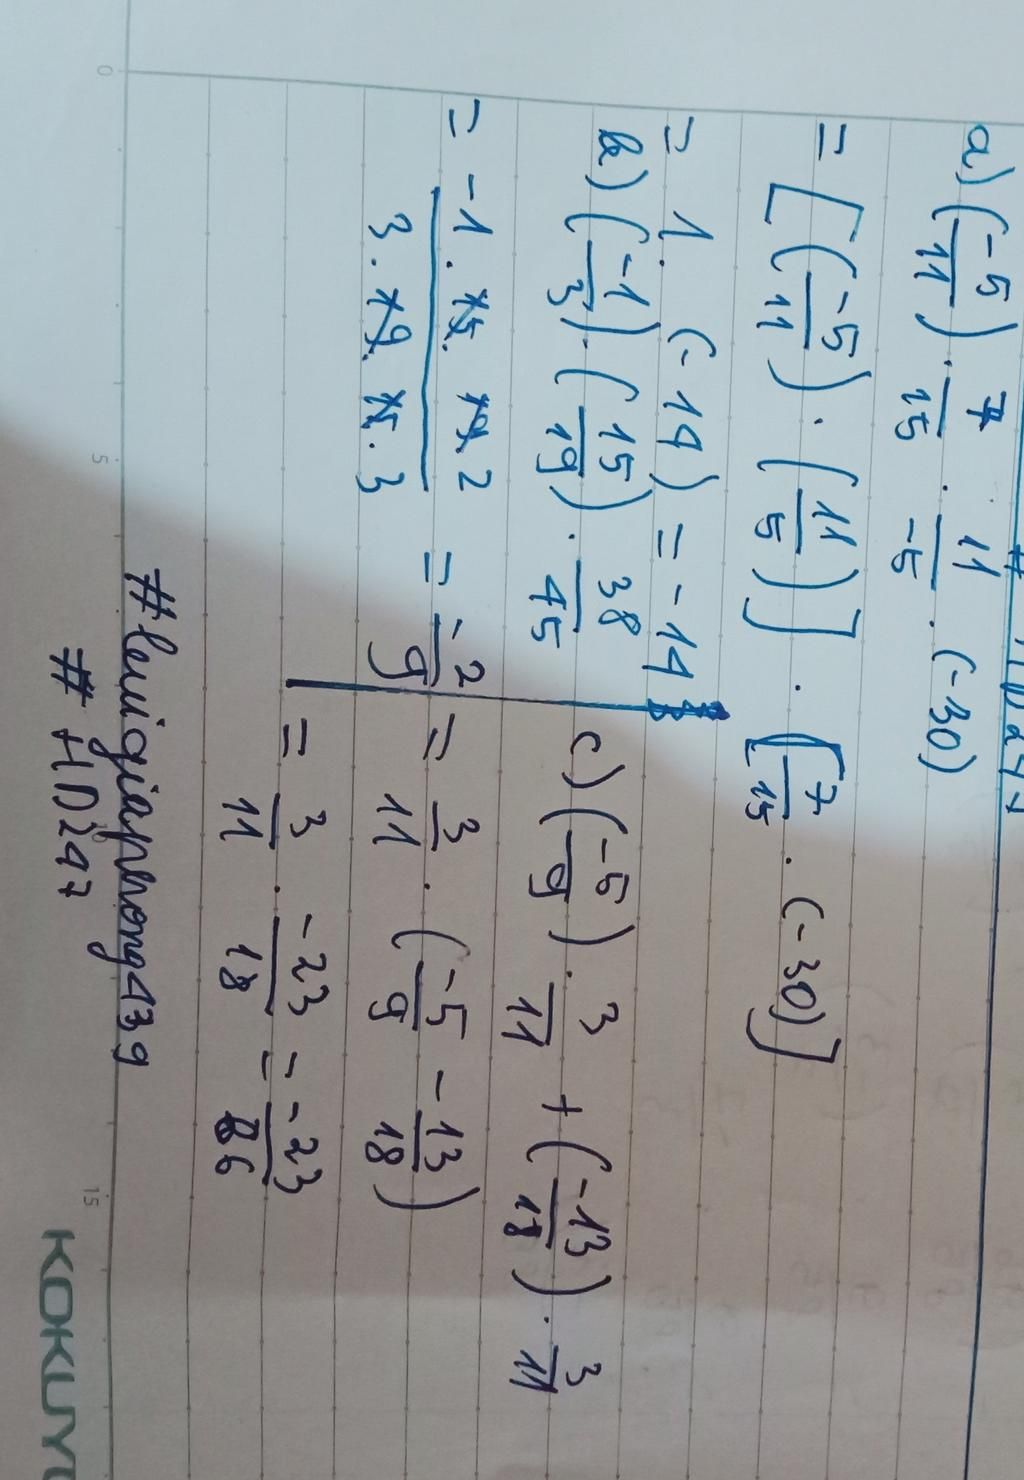 # HD247
a) (-5/11) . 7/15 . 11/-5 . (-30)
= [(-5/11) . (11/5)] . [7/15 . (-30)]
= 1. (-14) = -14
b) (-1/3) . (15/19) . 38/45
= -1. 15. 19. 2 / 3. 19. 15. 3 = -2/9
c) (-5/9) . 3/11 + (-13/18) . 3/11
= 3/11 . (-5/9 - 13/18)
= 3/11 . -23/18 = -23/66
#lenigiaphong439
# HD247
0 5 15
KOKUYO